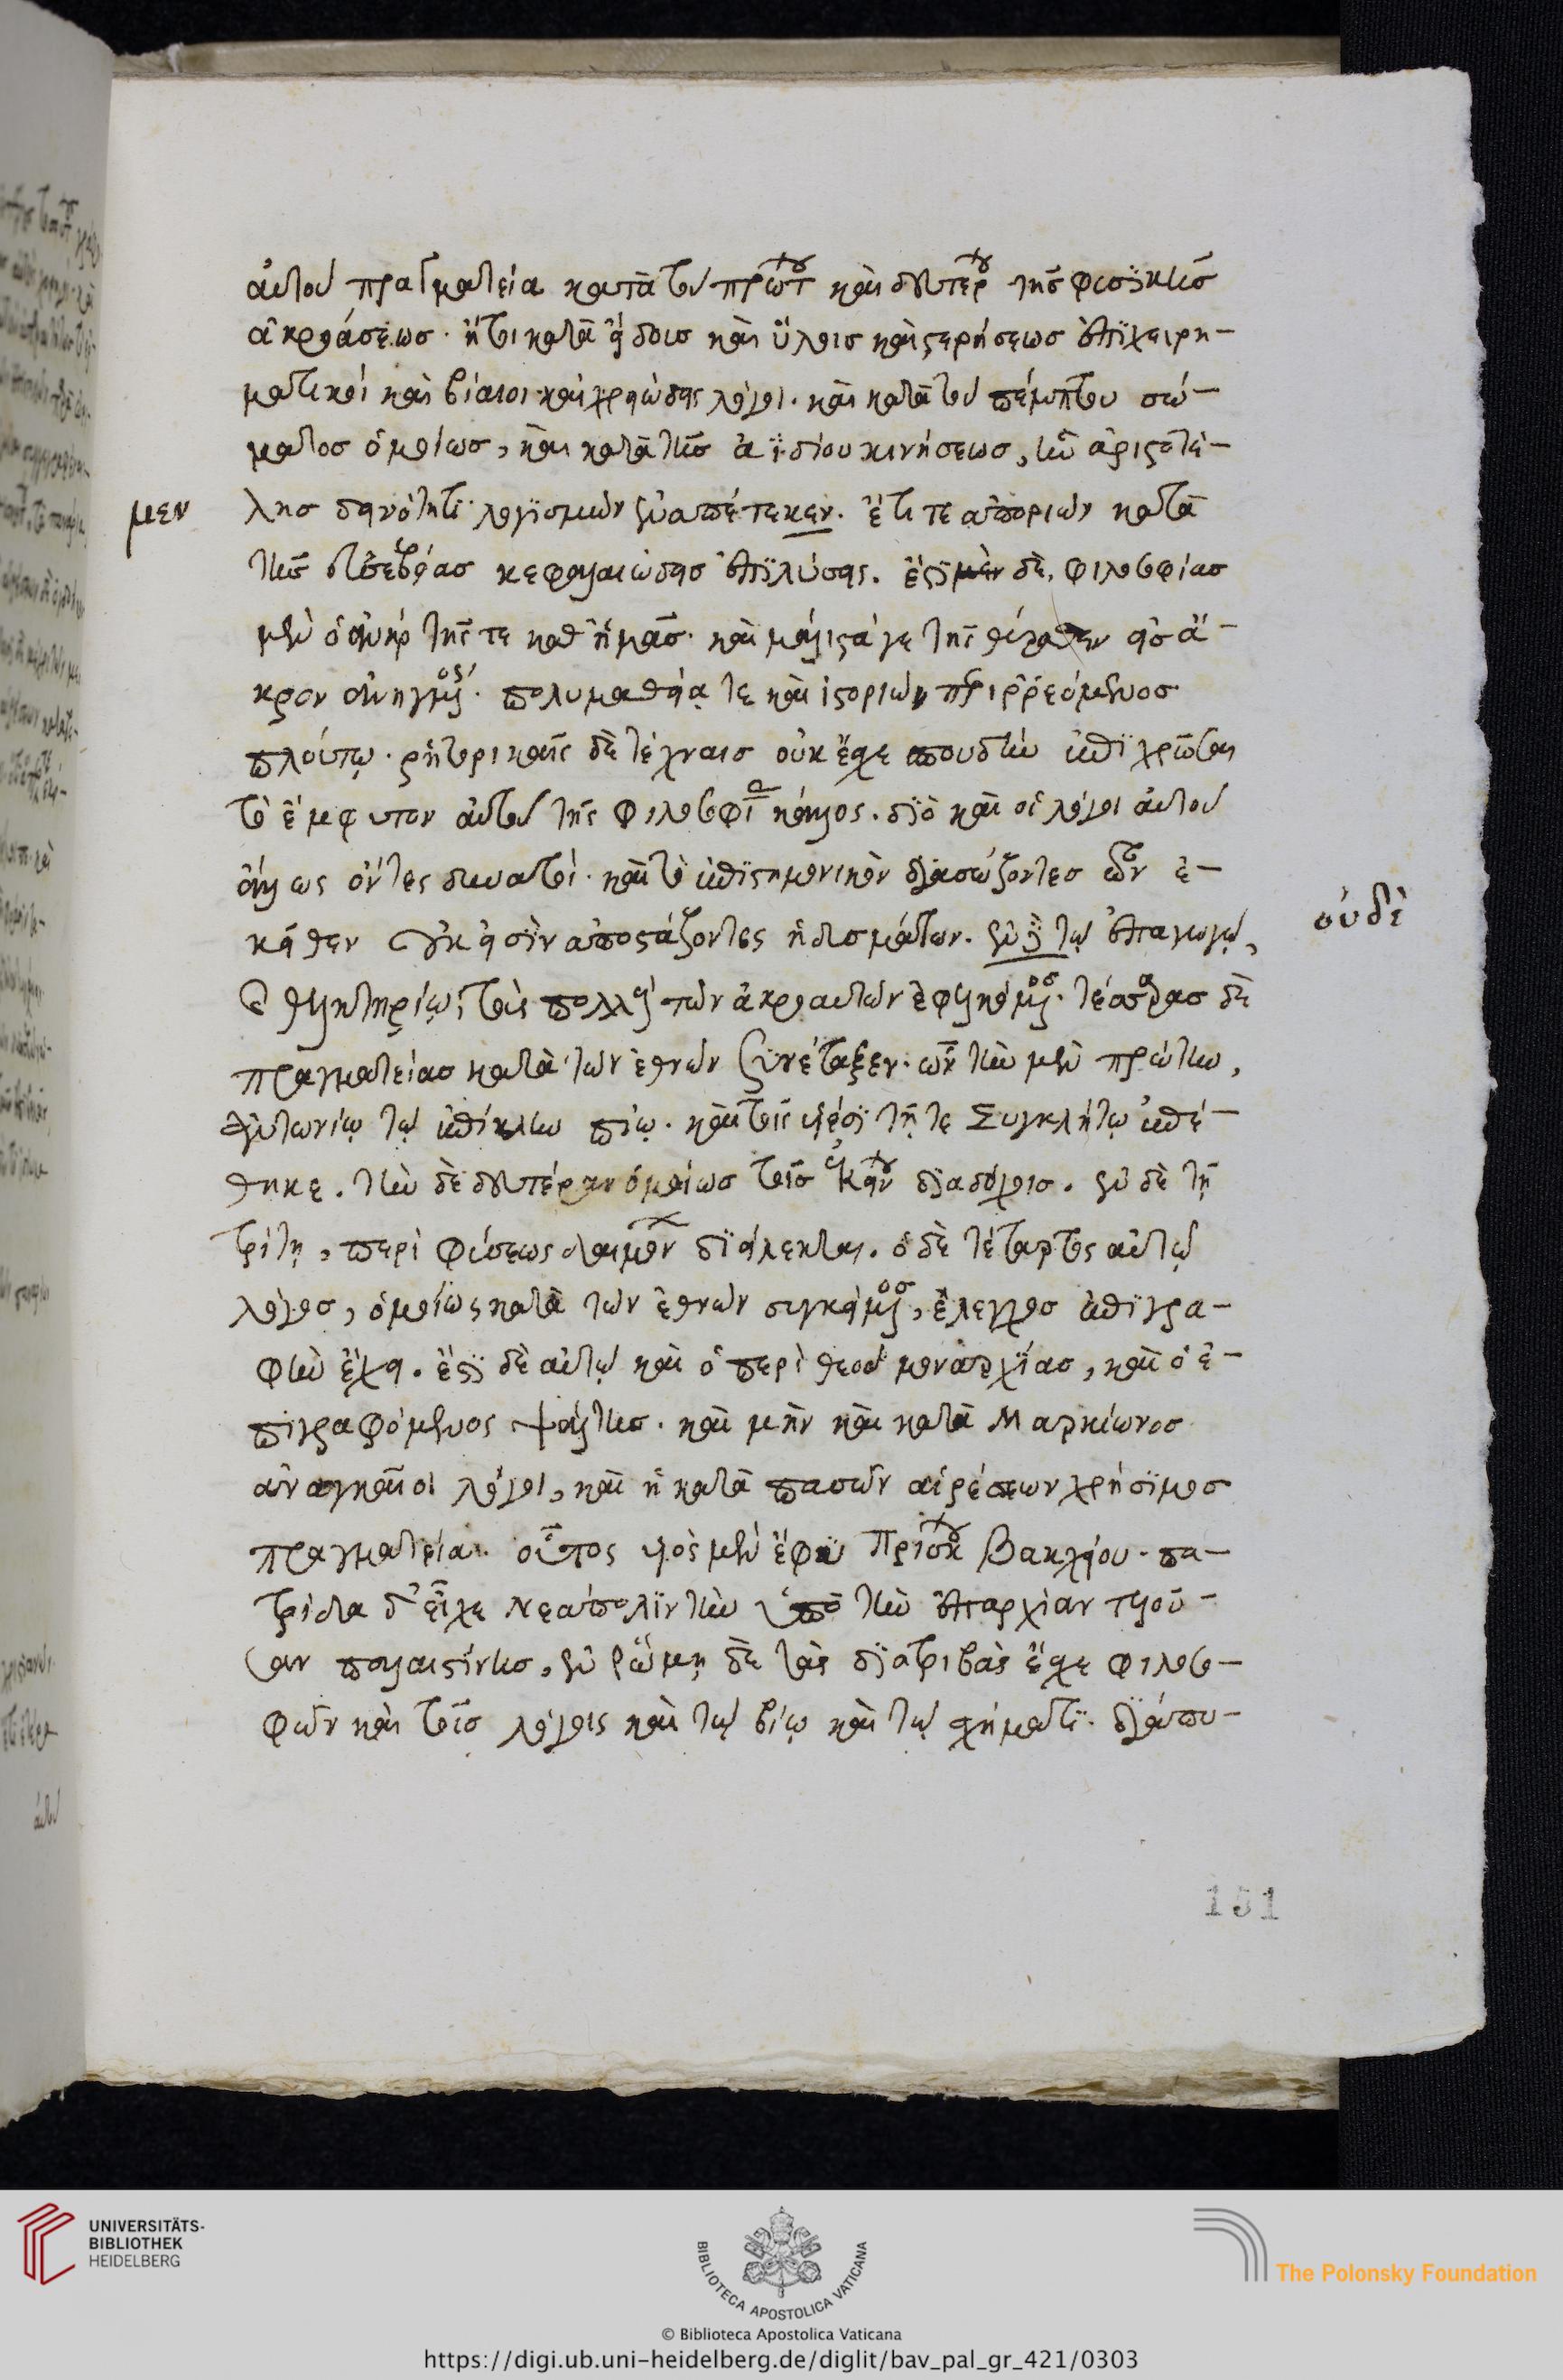 αὐτοῦ πραγματεία κατὰ τοῦ πρώτου καὶ δευτέρου τῆς φυσϊκῆς
ἀκροάσεως· ἤτοι κατὰ εἴδους καὶ ὕλης καὶ στερήσεως ἐπϊχειρη-
ματικοὶ καὶ βίαιοι καὶ χρειώδεις λόγοι. καὶ κατὰ τοῦ πέμπτου σώ-
ματος ὁμοίως, καὶ κατὰ τῆς ἀϊδίου κινήσεως, ἣν ἀριστοτέ-
μεν
λης δεινότητι λογϊσμῶν ἐναπέτεκεν. ἔτι τε ἀποριῶν κατὰ
τῆς εὐσεβείας κεφαλαιώδεις ἐπϊλύσεις. ἔστι μὲν δὲ, φιλοσοφίας
μὲν ὁ ἀνὴρ τῆς τε καθ' ἡμᾶς· καὶ μάλιστά γε τῆς θύραθεν εἰς ἄ-
κρον ἀνηγμένος· πολυμαθείᾳ τε καὶ ἱστοριῶν περιῤῥεόμενος
πλούτῳ· ῥητορικαῖς δὲ τέχναις οὐκ ἔσχε σπουδὴν ἐπϊχρῶσαι
τὸ ἔμφυτον αὐτοῦ τῆς φιλοσοφίας κάλλος. διὸ καὶ οἱ λόγοι αὐτοῦ
ἄλλως ὄντες δυνατοὶ· καὶ τὸ ἐπϊστημονικὸν διασώζοντες τῶν ἐ-
κεῖθεν οὐκ εἰσὶν ἀποστάζοντες ἡδυσμάτων. ἐν τῷ ἐπαγωγῷ,
οὐδὲ
καὶ θελκτηρίῳ, τοὺς πολλοὺς τῶν ἀκροατῶν ἐφελκόμενος· τέσσαρας δὲ
πραγματείας κατὰ τῶν ἐθνῶν συνέταξεν· ὧν τὴν μὲν πρώτην,
ἀντωνίῳ τῷ ἐπίκλην πίῳ· καὶ τοῖς υἱέσϊ τῇ τε Συγκλήτῳ ἐπέ-
θηκε. τὴν δὲ δευτέραν ὁμοίως τοῖς ἐκείνου διαδόχοις. ἐν δὲ τῇ
τρίτῃ, περὶ φύσεως δαιμόνων διείλεκται. ὁ δὲ τέταρτος αὐτῷ
λόγος, ὁμοίως κατὰ τῶν ἐθνῶν συγκείμενος, ἔλεγχος ἐπϊγρα-
φὴν ἔχει. ἔστι δὲ αὐτῷ καὶ ὁ περὶ θεοῦ μοναρχίας, καὶ ὁ ἐ-
πιγραφόμενος ψάλτης. καὶ μὴν καὶ κατὰ Μαρκίωνος
ἀναγκαῖοι λόγοι, καὶ ἡ κατὰ πασῶν αἱρέσεων χρήσϊμος
πραγματεία· οὗτος υἱὸς μὲν ἔφυ Πρίσκου βακχείου· πα-
τρίδα δ' εἶχε Νεάπολϊν τὴν ὑπὸ τὴν ἐπαρχίαν τελοῦ-
σαν παλαιστίνης, ἐν ῥώμῃ δὲ τὰς διατριβὰς ἔσχε φιλοσο-
φῶν καὶ τοῖς λόγοις καὶ τῷ βίῳ καὶ τῷ σχήματϊ. διάπυ-
151
UNIVERSITÄTS-
BIBLIOTHEK
HEIDELBERG
BIBLIOTECA APOSTOLICA VATICANA
© Biblioteca Apostolica Vaticana
The Polonsky Foundation
https://digi.ub.uni-heidelberg.de/diglit/bav_pal_gr_421/0303